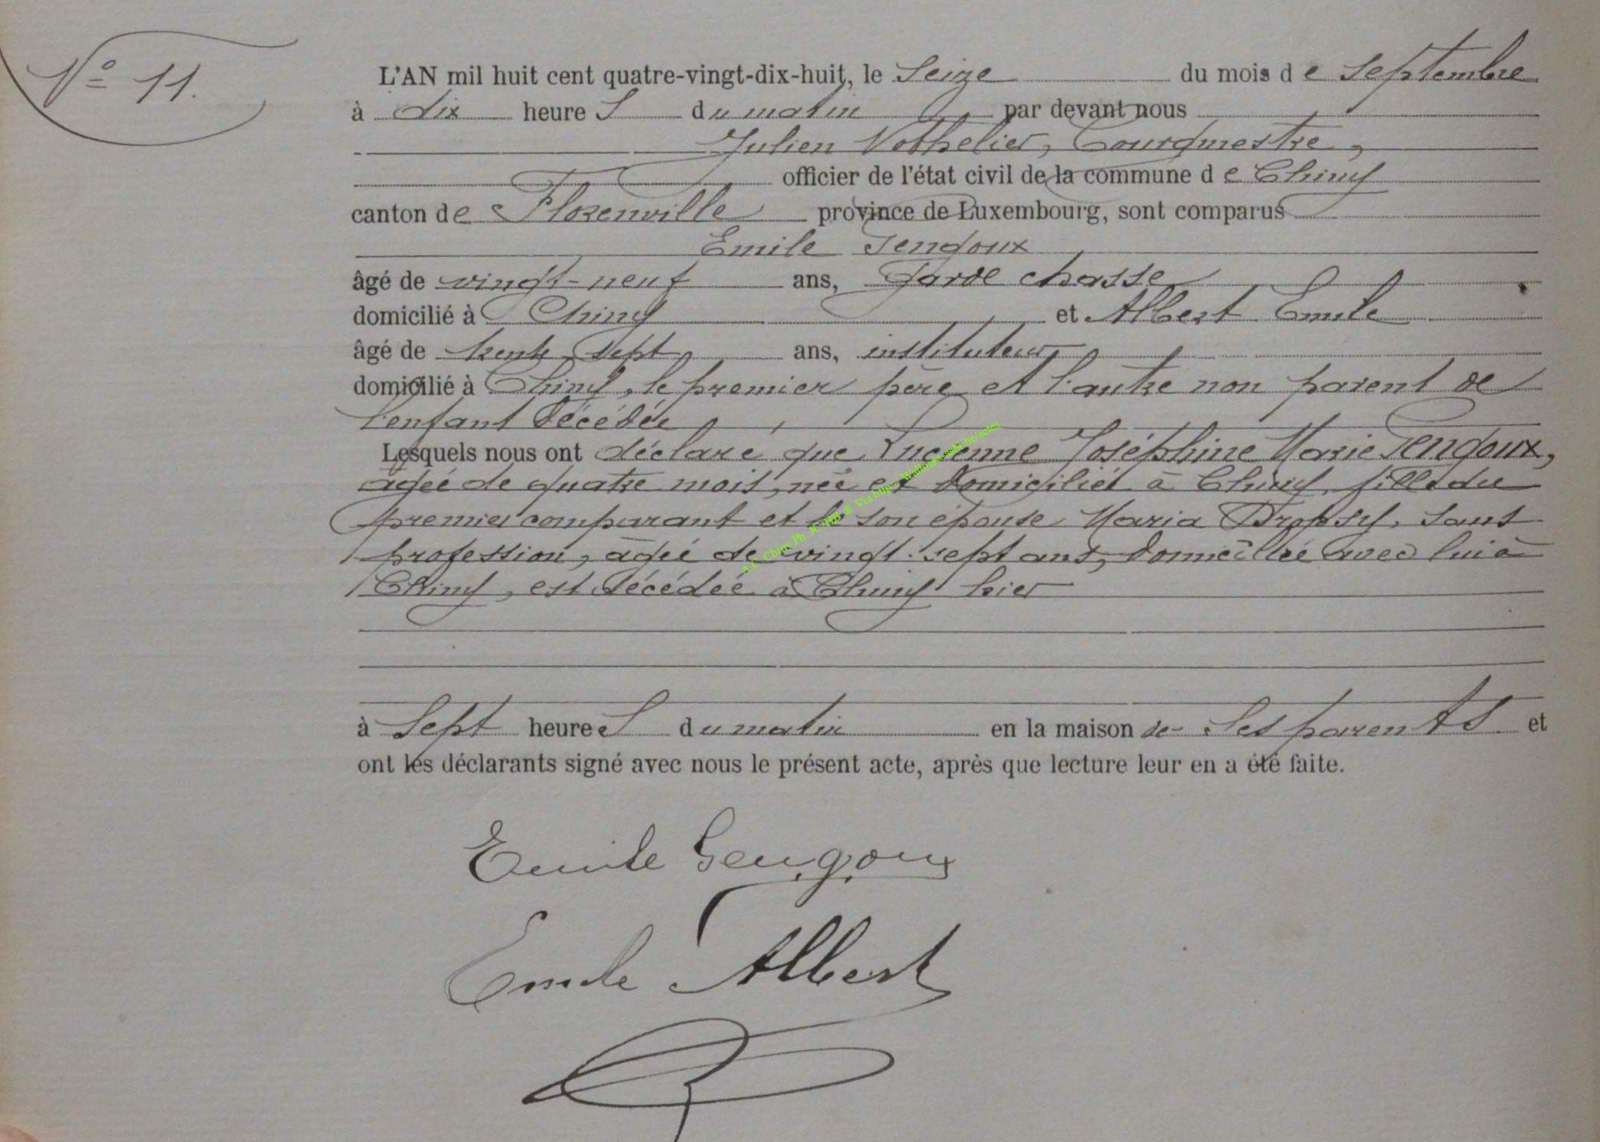 N° 11.
L'AN mil huit cent quatre-vingt-dix-huit, le Seize du mois de Septembre
à dix heures du matin par devant nous
Julien Nothelier, Bourgmestre,
officier de l'état civil de la commune de Chiny
canton de Florenville province de Luxembourg, sont comparus
Emile Gengoux
âgé de vingt-neuf ans, garde chasse
domicilié à Chiny et Albert Emile
âgé de trente sept ans, instituteur
domicilié à Chiny, le premier père et l'autre non parent de
l'enfant décédée
Lesquels nous ont déclaré que Lucienne Joséphine Marie Gengoux,
âgée de quatre mois, née et domiciliée à Chiny, fille du
premier comparant et de son épouse Maria Dropsy, sans
profession, âgée de vingt-sept ans, domiciliée avec lui à
Chiny, est décédée à Chiny hier
à Sept heures du matin en la maison de Ses parents et
ont les déclarants signé avec nous le présent acte, après que lecture leur en a été faite.
Emile Gengoux
Emile Albert